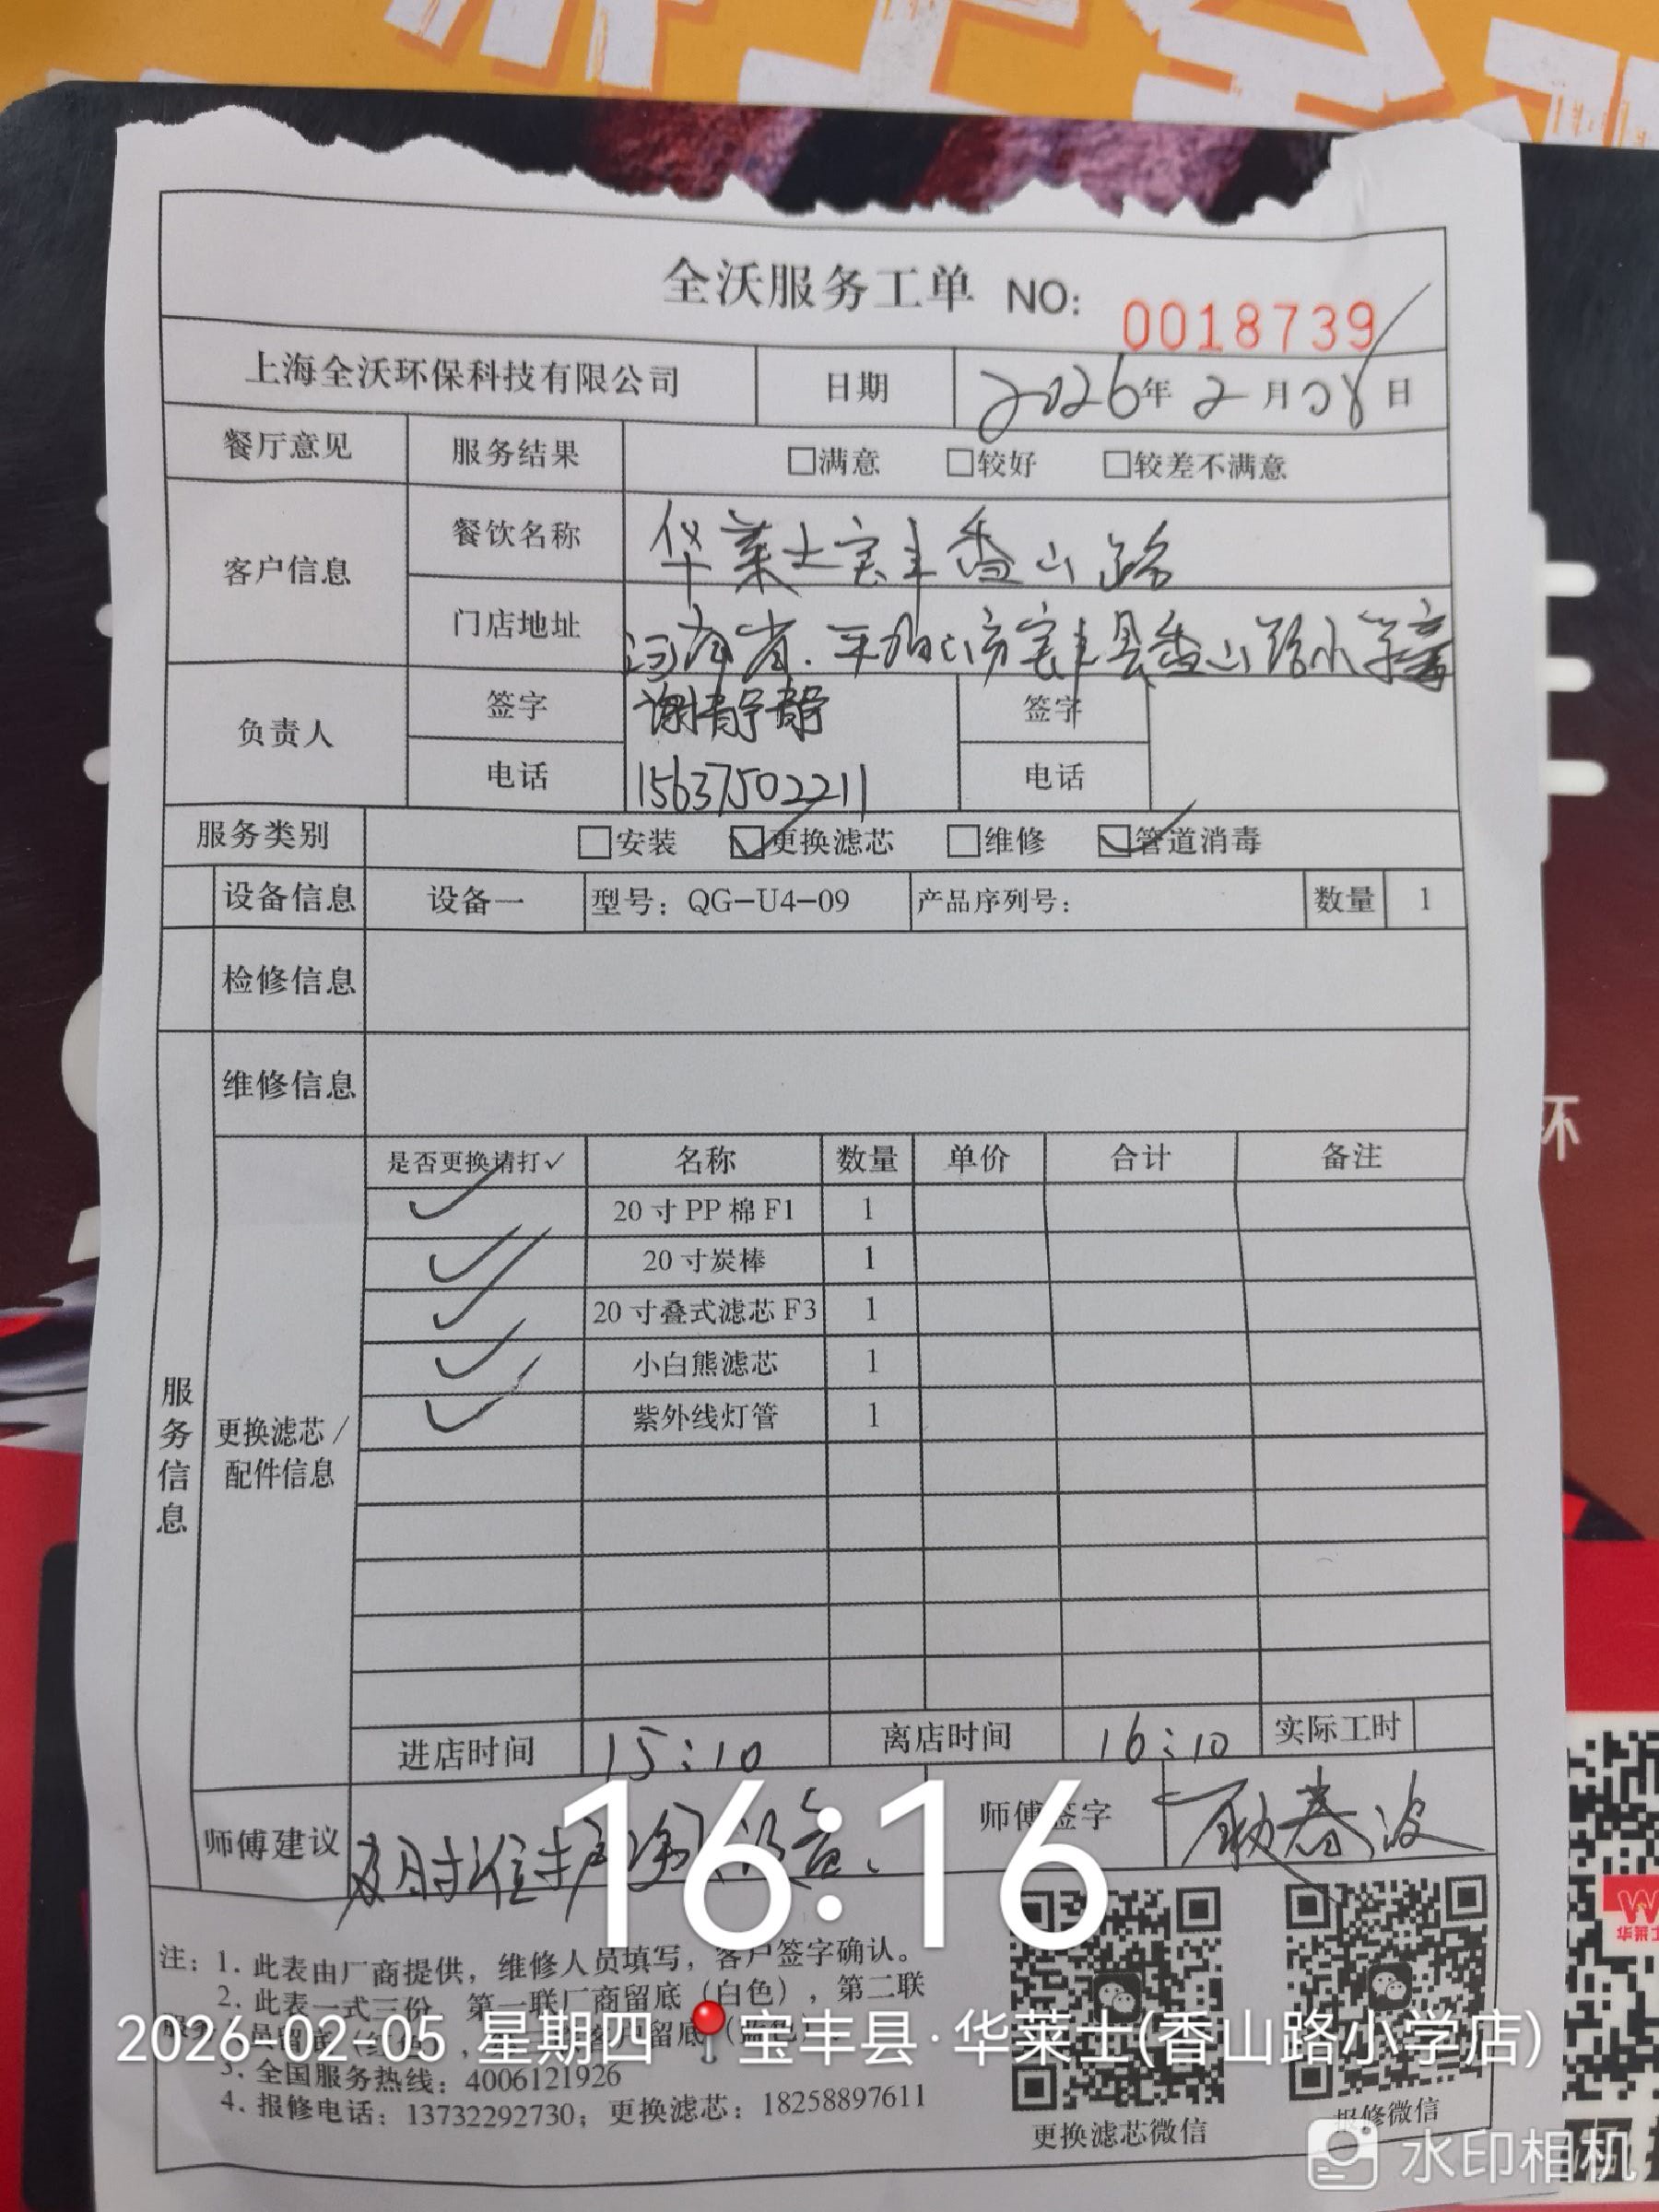 全沃服务工单 NO: 0018739
上海全沃环保科技有限公司 日期 2026年2月28日
餐厅意见 服务结果 □满意 □较好 □较差不满意
客户信息 餐饮名称 华莱士宝丰香山路
门店地址 河南省.平顶山市宝丰县香山路小学
负责人 签字 谢静静 签字
电话 15637502211 电话
服务类别 □安装 ☑更换滤芯 □维修 ☑管道消毒
设备信息 设备一 型号：QG-U4-09 产品序列号： 数量 1
检修信息
维修信息
服务信息
更换滤芯/配件信息
是否更换请打✓ 名称 数量 单价 合计 备注
✓ 20寸PP棉F1 1
✓ 20寸炭棒 1
✓ 20寸叠式滤芯F3 1
✓ 小白熊滤芯 1
✓ 紫外线灯管 1
进店时间 15:10 离店时间 16:10 实际工时
师傅建议 及时维护 师傅签字 耿春波
16:16
注：1. 此表由厂商提供，维修人员填写，客户签字确认。
2. 此表一式三份，第一联厂商留底（白色），第二联
2026-02-05 星期四 宝丰县·华莱士(香山路小学店)
3. 全国服务热线：4006121926
4. 报修电话：13732292730；更换滤芯：18258897611
更换滤芯微信 报修微信
水印相机
华莱士
环